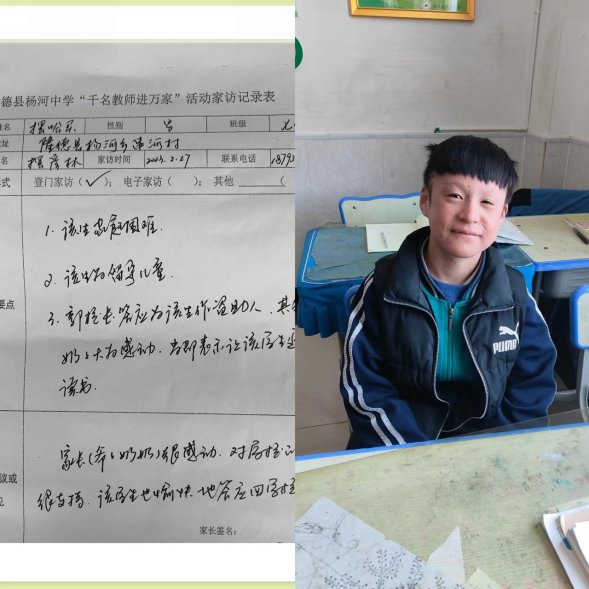 德县杨河中学“千名教师进万家”活动家访记录表
性别 男 班级
隆德县杨河乡串河村
家访时间 2023.2.27 联系电话
登门家访(✓); 电子家访( ); 其他
1. 该生家庭困难.
2. 该生为留守儿童.
要点
3. 郭校长答应为该生作资助人, 其
奶奶大为感动. 当即表示让该学生
读书.
家长(爷爷奶奶)很感动. 对学校
议或
很支持. 该学生也愉快地答应回学校
见
家长签名:
PUMA